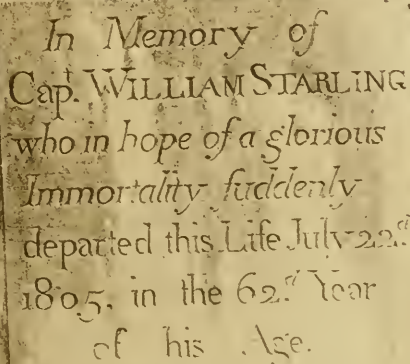 In Memory of
Capt. WILLIAM STARLING
who in hope of a glorious
Immortality ſuddenly
departed this Life July 22.d
1805. in the 62.d Year
of his Age.